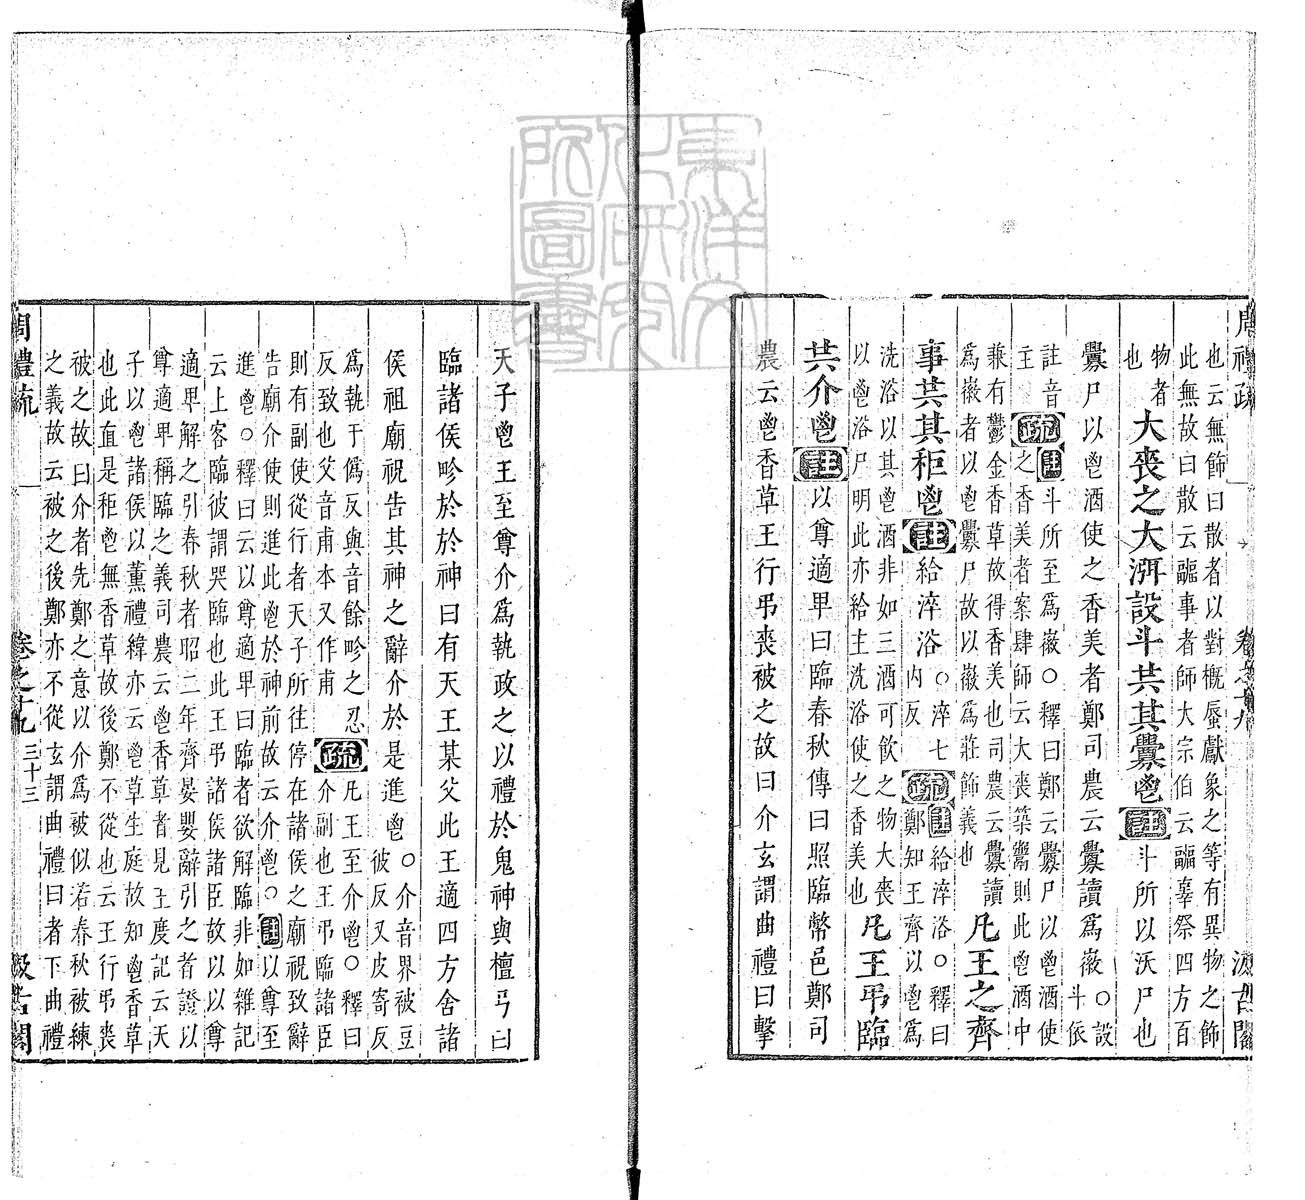 周禮疏 卷之十九 汲古閣
也云無飾曰散者以對概蜃獻象之等有異物之飾
此無故曰散云疈事者師大宗伯云疈辜祭四方百
物者
也
大喪之大渳設斗共其釁鬯註斗所以沃尸也
釁尸以鬯酒使之香美者鄭司農云釁讀為徽○設
斗依
註音
主
疏註斗所至為徽○釋曰鄭云釁尸以鬯酒使
之香美者案肆師云大喪築鬻則此鬯酒中
兼有鬱金香草故得香美也司農云釁讀
為徽者以鬯釁尸故以徽為莊飾義也
凡王之齊
事共其秬鬯註給淬浴○淬七
內反
疏註給淬浴○釋曰
鄭知王齊以鬯為
洗浴以其鬯酒非如三酒可飲之物大喪
以鬯浴尸明此亦給王洗浴使之香美也
凡王弔臨
共介鬯註以尊適卑曰臨春秋傳曰照臨幣邑鄭司
農云鬯香草王行弔喪被之故曰介玄謂曲禮曰摯
天子鬯王至尊介為執政之以禮於鬼神與檀弓曰
臨諸侯畛於於神曰有天王某父此王適四方舍諸
侯祖廟祝告其神之辭介於是進鬯○介音界被豆
彼反又皮寄反
為執于偽反與音餘畛之忍
反致也父音甫本又作甫
疏凡王至介鬯○釋曰
介副也王弔臨諸臣
則有副使從行者天子所往停在諸侯之廟祝致辭
告廟介使則進此鬯於神前故云介鬯○註以尊至
進鬯○釋曰云以尊適卑曰臨者欲解臨非如雜記
云上客臨彼謂哭臨也此王弔諸侯諸臣故以以尊
適卑解之引春秋者昭二年齊晏嬰辭引之者證以
尊適卑稱臨之義司農云鬯香草者見王度記云天
子以鬯諸侯以薰禮緯亦云鬯草生庭故知鬯香草
也此直是秬鬯無香草故後鄭不從也云王行弔喪
被之故曰介者先鄭之意以介為被似若春秋被練
之義故云被之後鄭亦不從玄謂曲禮曰者下曲禮
周禮疏 卷之十九 三十三 汲古閣
東洋文
化研究
所圖書